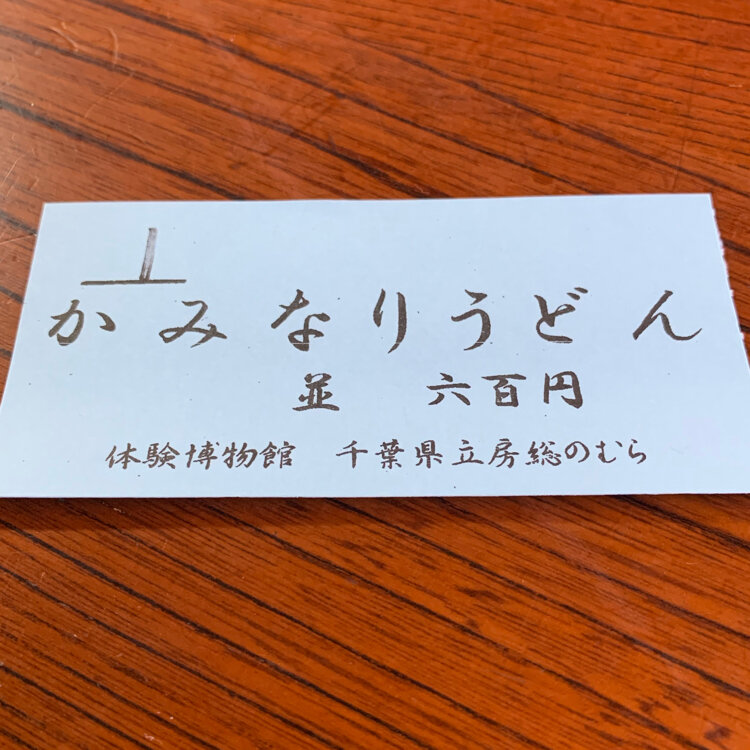 1
かみなりうどん
並 六百円
体験博物館 千葉県立房総のむら